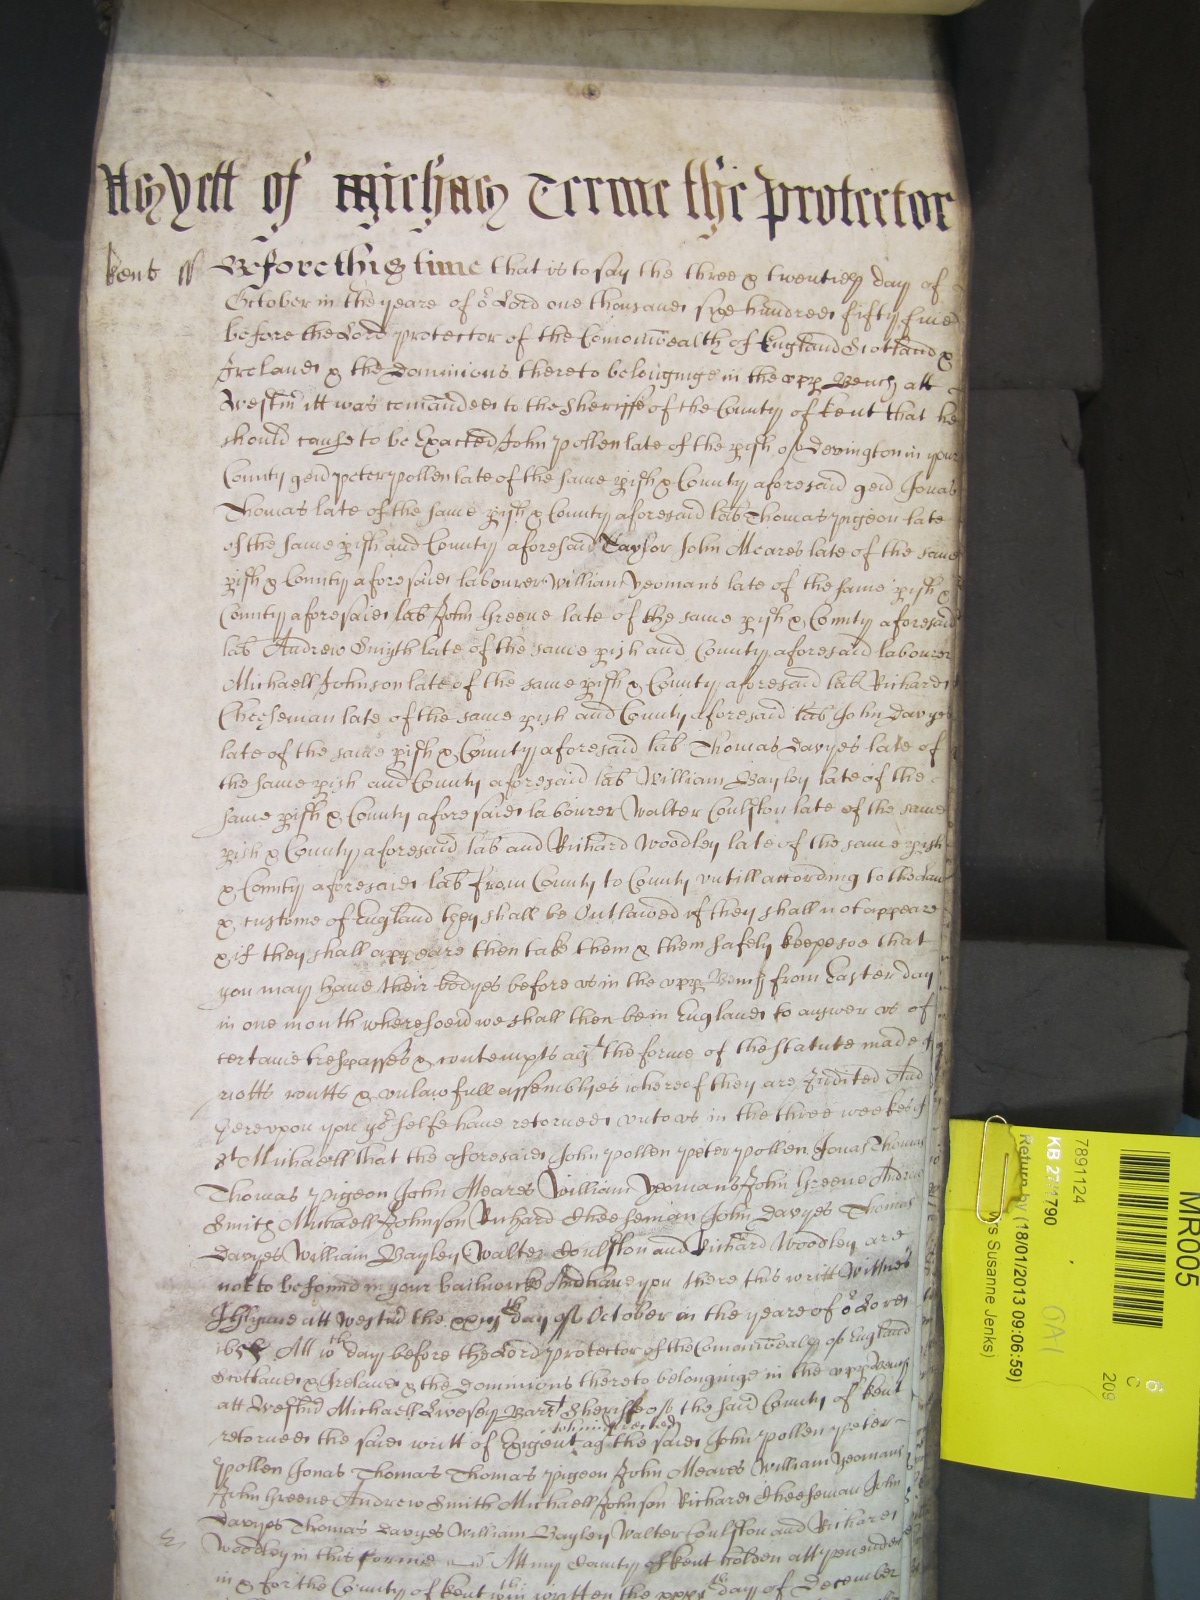 yett of Michas Terme the Protector
Kent ss Before this time that is to say the three & twentieth day of
October in the yeare of or Lord one thousand sixe hundred fifty five
before the Lord Protector of the Comonwealth of England Scotland &
Ireland & the Dominions thereto belonginge in the vpp Bench att
Westmr itt was comanded to the Sheriffe of the County of Kent that he
should cause to be Exacted John Pollen late of the pish of Devington in your
County gent Peter Pollen late of the same pish & County aforesaid gent Jonas
Thomas late of the same pish & County aforesaid lab Thomas Pigeon late
of the same pish and County aforesaid Taylor John Meares late of the same
pish & County aforesaid labourer William Yeomans late of the same pish &
County aforesaid lab John Greene late of the same pish & County aforesaid
lab Andrew Smyth late of the same pish and County aforesaid labourer
Michaell Johnson late of the same pish & County aforesaid lab Richard
Cheeseman late of the same pish and County aforesaid lab John Davyes
late of the same pish & County aforesaid lab Thomas Davyes late of
the same pish and County aforesaid lab William Bayley late of the
same pish & County aforesaid labourer Walter Coulston late of the same
pish & County aforesaid lab and Richard Woodley late of the same pish
& County aforesaid lab from County to County vntill according to the law
& custome of England they shall be Outlawed if they shall not appeare
& if they shall appeare then take them & them safely keepe soe that
you may have their bodyes before vs in the vpp Bench from Easter day
in one month wheresoeu we shall then be in England to answer vs of
certaine trespasses & contempts agt the forme of the Statute made of
riotts routts & vnlawfull assemblyes whereof they are Indited And
herevpon you yor selfe have retorned vnto vs in the three weekes of
St Michaell that the aforesaid John Pollen Peter Pollen Jonas Thomas
Thomas Pigeon John Meares William Yeomans John Greene Andrew
Smith Michaell Johnson Richard Cheeseman John Davyes Thomas
Davyes William Bayley Walter Coulston and Richard Woodley are
not to be found in your bailiwicke And have you there this writt Wittnes
att Westmr the day of October in the yeare of or Lord
1655 Att wch day before the Lord Protector of the Comonwealth of England
Scotland & Ireland & the Dominions thereto belonginge in the vpp Bench
att Westmr Michaell Livesey Barrt Sheriffe of the said County of Kent
retorned the said writt of Exigent to him directed agt the said John Pollen Peter
Pollen Jonas Thomas Thomas Pigeon John Meares William Yeomans
John Greene Andrew Smith Michaell Johnson Richard Cheeseman John
Davyes Thomas Davyes William Bayley Walter Coulston and Richard
Woodley in this forme Att my County of Kent holden att Penenden
in & for the County of Kent wthin written the day of December
MR005
7891124
KB 27/1790
Return by (18/01/2013 09:06:59)
Susanne Jenks)
6
C
209